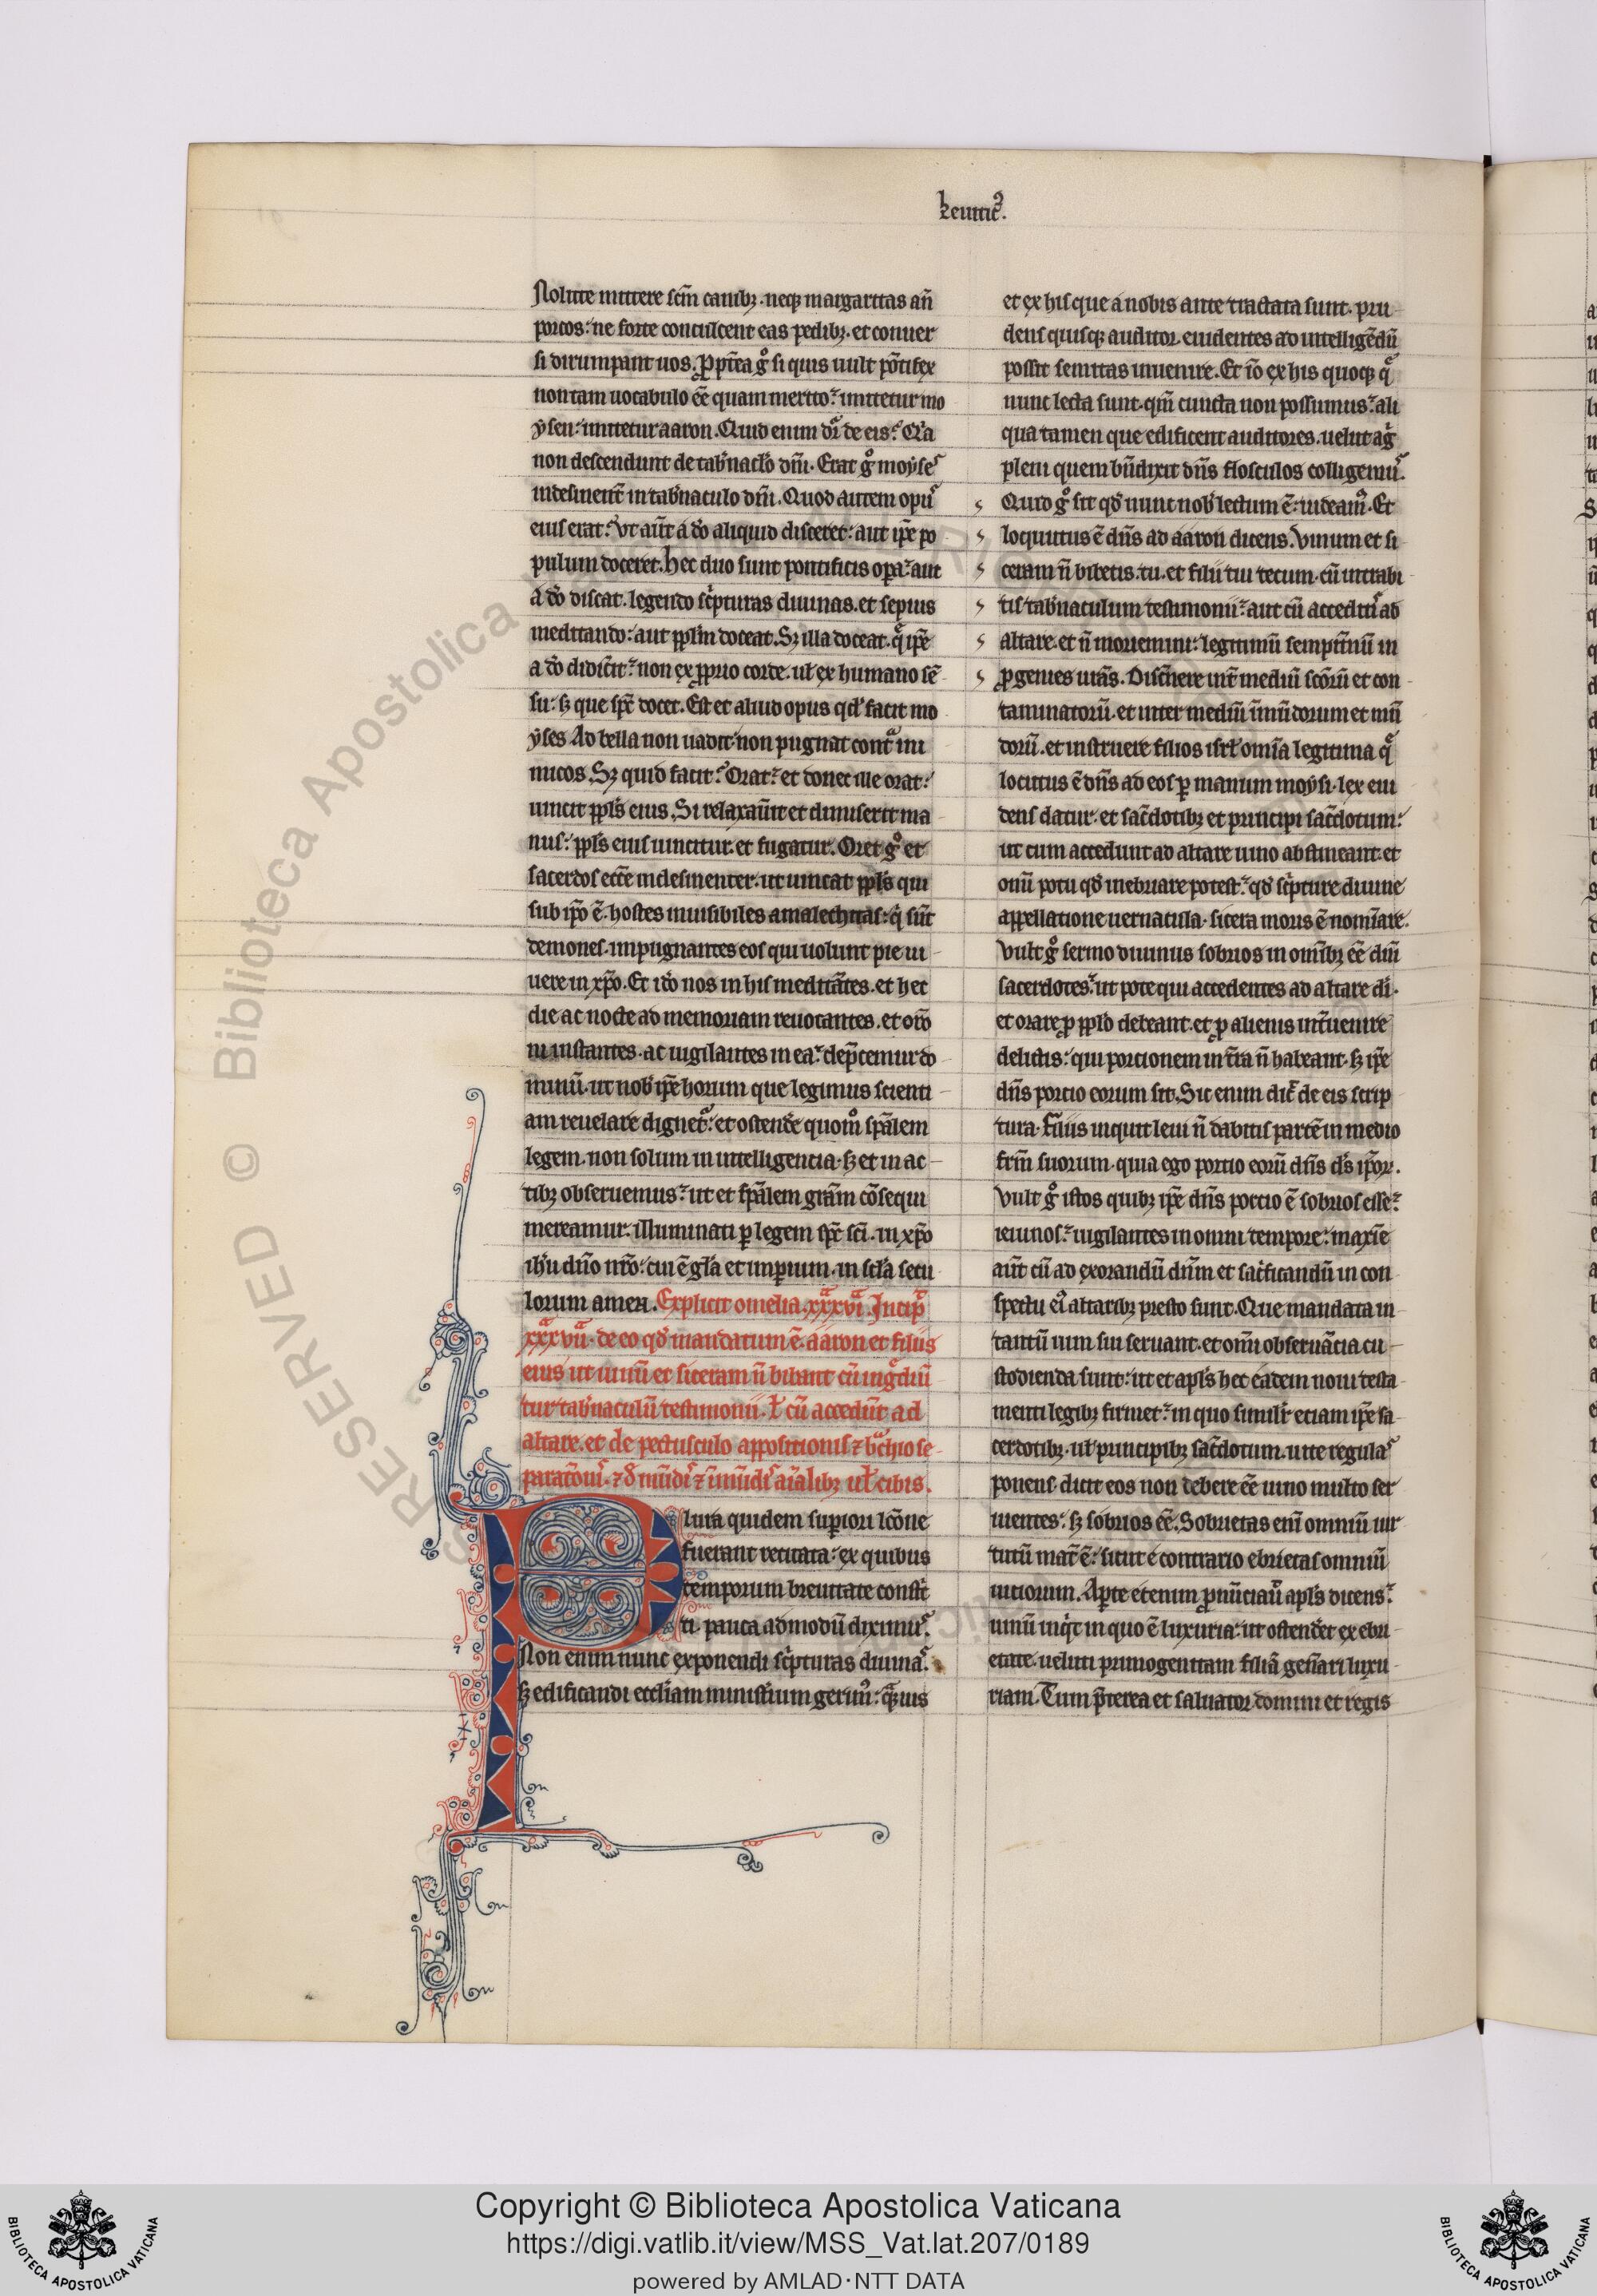 Leuitic᷒.
Nolite mittere scm̄ canibꝫ. neqꝫ margaritas an̄
porcos: ne forte conculcent eas pedibꝫ. et conuer
si dirumpant uos. Ꝓpt̄ea gͦ si quis uult pōtifex
non tam uocabulo ēē quam merito: imitetur mo
ysen: imitetur aaron. Quid enim dr̄ de eis? Qͥa
non descendunt de tab̄nacl̄o dn̄i. Erat gͦ moyses
indesinent̄ in tab̄naculo dn̄i. Quod autem opus
eius erat? Vt aūt a dō aliquid disceret: aut ip̄e po
pulum doceret. Hec duo sunt pontificis opa: aut
a dō discat. legendo sc̄pturas diuinas. et sepius
meditando: aut ppl̄m doceat. Sꝫ illa doceat. q̄ ip̄e
a dō didicit: non ex ꝓprio corde. ul̄ ex humano sē
su: sꝫ que sp̄c docet. Est et aliud opus qd̄ facit mo
yses Ad bella non uadit. non pugnat contͣ ini
micos. Sꝫ quid facit? Orat: et donec ille orat:
uincit ppl̄s eius. Si relaxau̅it et dimiserit ma
nus: ppl̄s eius uincitur. et fugatur. Oret gͦ et
sacerdos ecc̄e indesinenter. ut uincat ppl̄s qui
sub ip̄o ē. hostes inuisibiles amalechitas: qͥ sūt
demones. impugnantes eos qui uolunt pie ui
uere in xp̄o. Et iō nos in his meditātes. et hec
die ac nocte ad memoriam reuocantes. et orō
ni instantes. ac uigilantes in ea: dep̄cemur do
minū. ut nob̄ ip̄e horum que legimus scienti
am reuelare dignet᷑: et ostendere quomͦ sp̄alem
legem. non solum in intelligencia. sꝫ et in ac
tibꝫ obseruemus: ut et sp̄alem grām cōsequi
mereamur. illuminati ꝑ legem sp̄c sc̄i. in xp̄o
ih̄u dn̄o nr̄o: cui ē gl̄a et imꝑium. in sc̄la secu
lorum amen. Explicit omelia. xxxviͣ. Incip̄
xxxviiͣ. de eo qd̄ mandatum ē. aaron et filiis
eius ut uinū et siceram n̄ bibant cū ingͤdiū
tur tab̄naculū testimonii. ł cū accedūt ad
altare. et de pectusculo appositionis ⁊ bͣchio se
paratōis. ⁊ đ mūdis ⁊ īmūdis aīalibꝫ ul̄ cibis.
Plura quidem supiori lcōne
fuerant recitata: ex quibus
temporum breuitate constͥc
ti. pauca admodū diximus.
Non enim nunc exponendi sc̄pturas diuinas.
sꝫ edificandi eccl̄iam minist̄ium gerim᷒: qͣꝫuis
et ex his que a nobis ante tractata sunt. pru
dens quisqꝫ auditor. euidentes ad intelligēdū
possit semitas inuenire. Et iō ex his quoqꝫ q̄
nunc lecta sunt. qm̄ cuncta non possumus: ali
qua tamen que edificent auditores. uelut agͥ
pleni quem bn̄dixit dn̄s flosculos colligem᷒.
Quid gͦ sit qd̄ nunc nob̄ lectum ē: uideam᷒. Et
loqutus ē dn̄s ad aaron dicens. Vinum et si
ceram n̄ bibetis. tu. et filii tui tecum. cū intrabi
tis tab̄naculum testimonii: aut cū acceditis ad
altare. et n̄ moriemini: legitimū sempit̄nū in
ꝓgenies ur̄as. Disc̄nere int̄ mediū sc̄orū et con
taminatorū. et inter mediū īmūdorum et mū
dorū. et instruere filios isrl̄ om̄ia legitima q̄
locutus ē dn̄s ad eos ꝑ manum moysi. lex eui
dens datur. et sac̄dotibꝫ et principi sac̄dotum:
ut cum accedunt ad altare uino abstineant. et
om̄i potu qd̄ inebriare potest: qd̄ sc̄pture diuine
appellatione uernacula. sicera moris ē nom̄iare.
Vult gͦ sermo diuinus sobrios in om̄ibꝫ ēē dn̄i
sacerdotes: ut pote qui accedentes ad altare di.
et orare ꝓ ppl̄o debeant. et ꝓ alienis int̄uenire
delictis: qui porcionem in t̄ra n̄ habeant. sꝫ ip̄e
dn̄s porcio eorum sit. Sic enim dic̄ de eis scrip
tura. Filiis inquit leui n̄ dabitis partē in medio
fr̄m suorum. quia ego portio eorū dn̄s ds̄ ip̄oꝝ.
Vult gͦ istos quibꝫ ip̄e dn̄s portio ē sobrios esse:
ieiunos: uigilantes in omni tempore: maxīe
aūt cū ad exorandū dn̄m et sac̄ficandū in con
spectu eiͥ altaribꝫ presto sunt. Que mandata in
tantū uim sui seruant. et om̄i obseruācia cu
stodienda sunt: ut et apl̄s hec eadem noui testa
menti legibꝫ firmet: in quo similit̄ etiam ip̄e sa
cerdotibꝫ. ul̄ principibꝫ sac̄dotum. uite regulas
ponens. dicit eos non debere ēē uino multo ser
uientes: sꝫ sobrios ēē. Sobrietas eni omniū uir
tutū mat̄ ē: sicut e contrario ebrietas omniū
uiciorum. Aꝑte etenim ꝓnūciauͥ apl̄s dicens:
uinū inqͥt in quo ē luxuria: ut ostendͤet ex ebri
etate. ueluti primogenitam filiā gen̄ari luxu
riam. Tum p̄terea et saluator. domini et regis
Copyright © Biblioteca Apostolica Vaticana
https://digi.vatlib.it/view/MSS_Vat.lat.207/0189
powered by AMLAD·NTT DATA
BIBLIOTECA APOSTOLICA VATICANA
BIBLIOTECA APOSTOLICA VATICANA